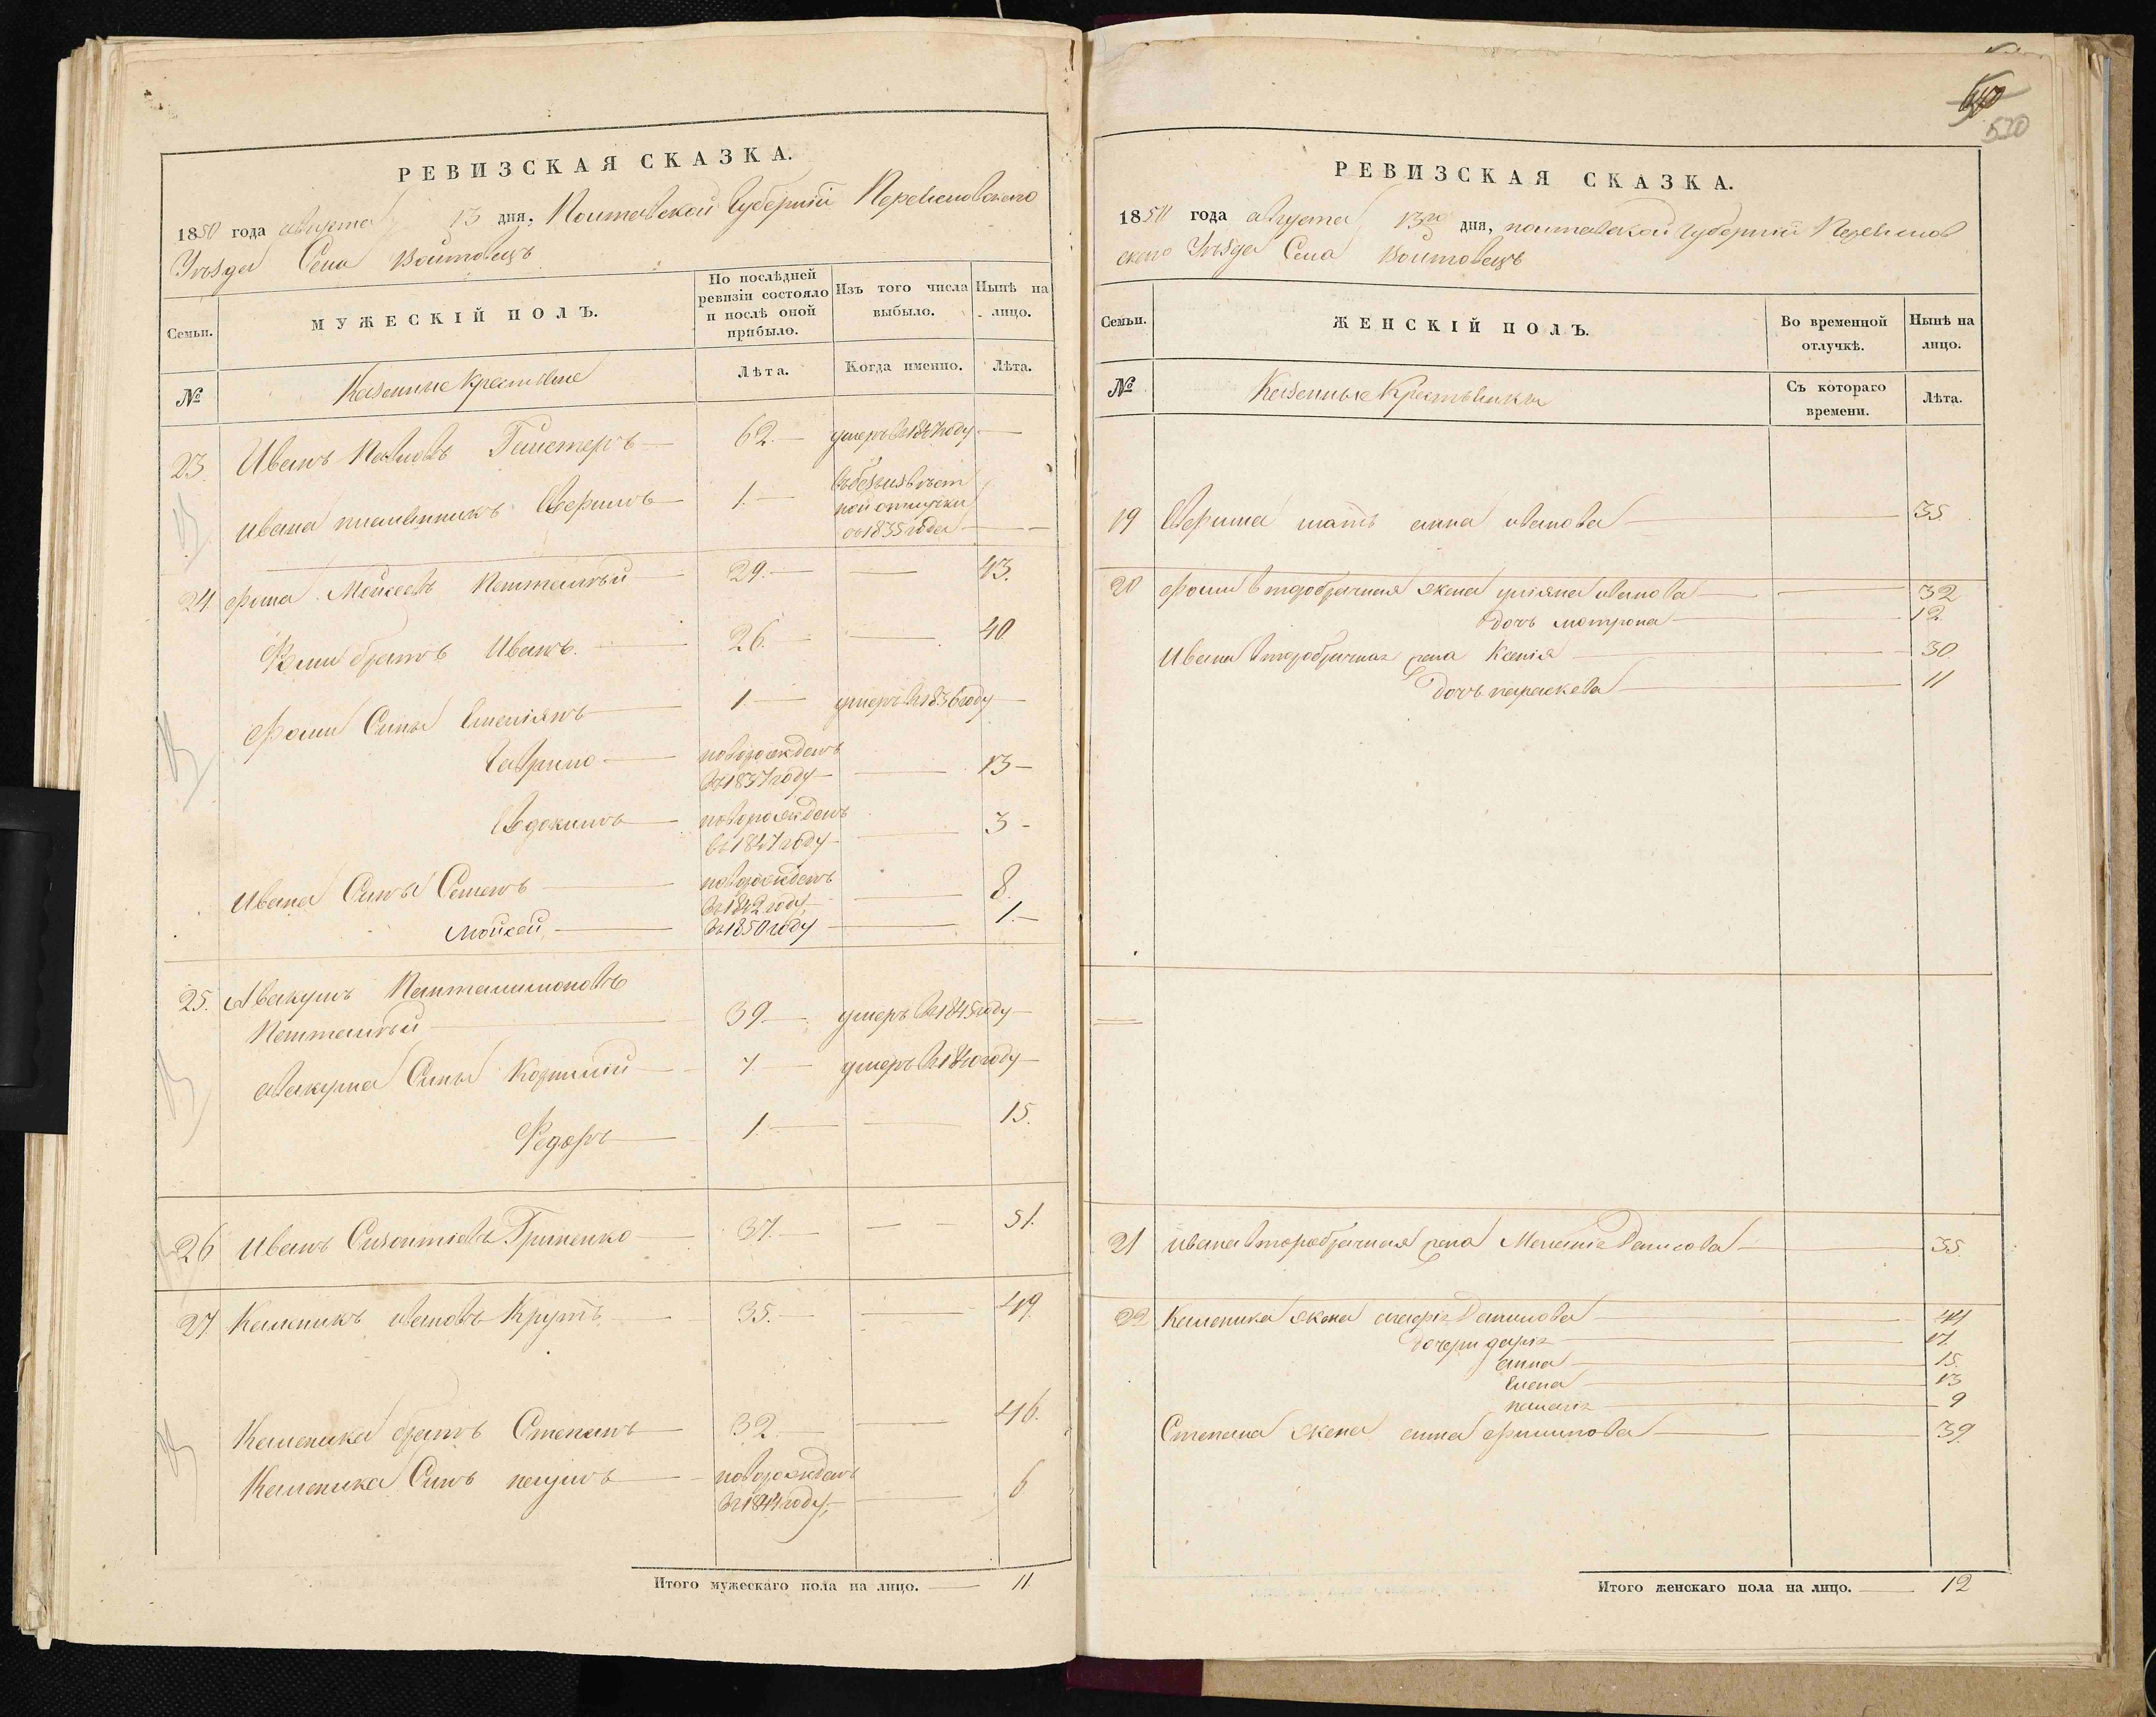 РЕВИЗСКАЯ СКАЗКА.
1850 года августа 13 дня, Полтавской Губерніи Переясловского
Уѣзда Села Войтовецъ
Семьи.
МУЖЕСКІЙ ПОЛЪ.
По послѣдней ревизіи состояло и послѣ оной прибыло.
Изъ того числа выбыло.
Нынѣ на лицо.
№
Казенные крестьяне
Лѣта.
Когда именно.
Лѣта.
23. Иванъ Павловъ 62. умеръ въ 1847 году
Ивана племянникъ 1. въ безъизвѣст
ной отлучки
съ 1835 года
24 Фома Моисеевъ 29. 43.
Фомы братъ Иванъ. 26. 40
Фомы Сыны Емеліянъ 1. умеръ въ 1836 году
Гаврило новорожденъ
въ 1837 году 13
Евдокимъ новорожденъ
въ 1847 году 3
Ивана Сыны Семенъ новорожденъ
въ 1842 году 8.
Мойсей въ 1850 году 1.
25. Авакумъ Пантелимоновъ
39. умеръ въ 1845 году
Авакума Сыны Корнилій 7. умеръ въ 1840 году
Федоръ 1. 15.
26 Иванъ Гриненко 37. 51.
27 Каленикъ Ивановъ Крутъ 35. 49.
Каленика братъ Степанъ 32. 46.
Каленика Сынъ наумъ новорожденъ
въ 1844 году 6
Итого мужескаго пола на лицо. 11
520
РЕВИЗСКАЯ СКАЗКА.
1850 года августа 13го дня, полтавской Губерніи Переяслов
ского Уѣзда Села Войтовецъ
Семьи.
ЖЕНСКІЙ ПОЛЪ.
Во временной отлучкѣ.
Нынѣ на лицо.
№
Казенные Крестьянки
Съ котораго времени.
Лѣта.
19 мать анна иванова 35.
20 Фомы второбрачная жена уліяна иванова 32
дочь мотрона 12.
Ивана второбрачная жена Ксенія 30.
дочь параскева 11
21 ивана второбрачная жена Меланія Денисова 35.
22 Каленика жена марія Данилова 44
дочери дарія 17.
анна 15.
Елена 13
9
Степана жена анна филипова 39.
Итого женскаго пола на лицо. 12